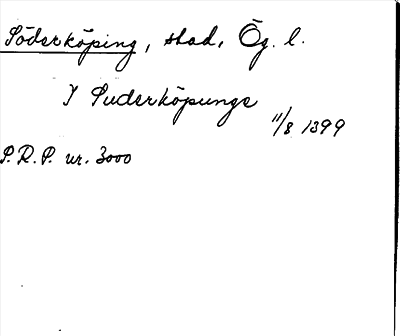 Söderköping, stad, Ög. l.
I Suderköpunge
11/8 1399
S.R.P. nr. 3000